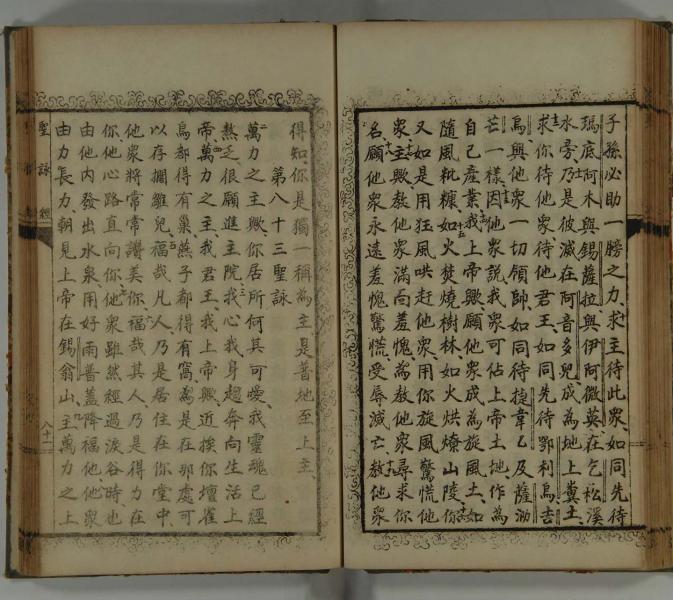 子孫必助一膀之力求主待此衆如同先待
瑪底阿木與錫薩拉與伊阿微英在乞松溪
水旁乃是彼滅在阿音多兒成為地上糞土
求你待他衆待他君王如同先待鄂利烏吉
烏興他衆一切領帥如同待捷韋乙及薩泐
芒一樣因他衆說我衆可佔上帝土地作為
自己產業我上帝歟願他衆成為旋風土如
隨風粃糠如火焚燒樹林如火烘燎山陵你
又如是用狂風哄赶他衆用你旋風驚慌他
衆主歟敎他衆滿向羞愧為敎他衆尋求你
名願他衆永遠羞愧驚慌受辱滅亡敎他衆
得知你是獨一稱為主是普地至上主
第八十三聖詠
萬力之主歟你居所何其可愛我靈魂已經
熬乏很願進主院我心我身趨奔向生活上
帝萬力之主我君王我上帝歟近挨你壇雀
鳥都得有巢燕子都得有窩為是在那處可
以存擱雛兒福哉凡人乃是居住在你堂中
他衆將常常讚美你福哉其人乃是得力在
你他心路直向你他衆雖然經過淚谷時也
由他內發出水泉用好雨普蓋降福他他衆
由力長力朝見上帝在錫翁山主萬力之上
聖詠經
八十一